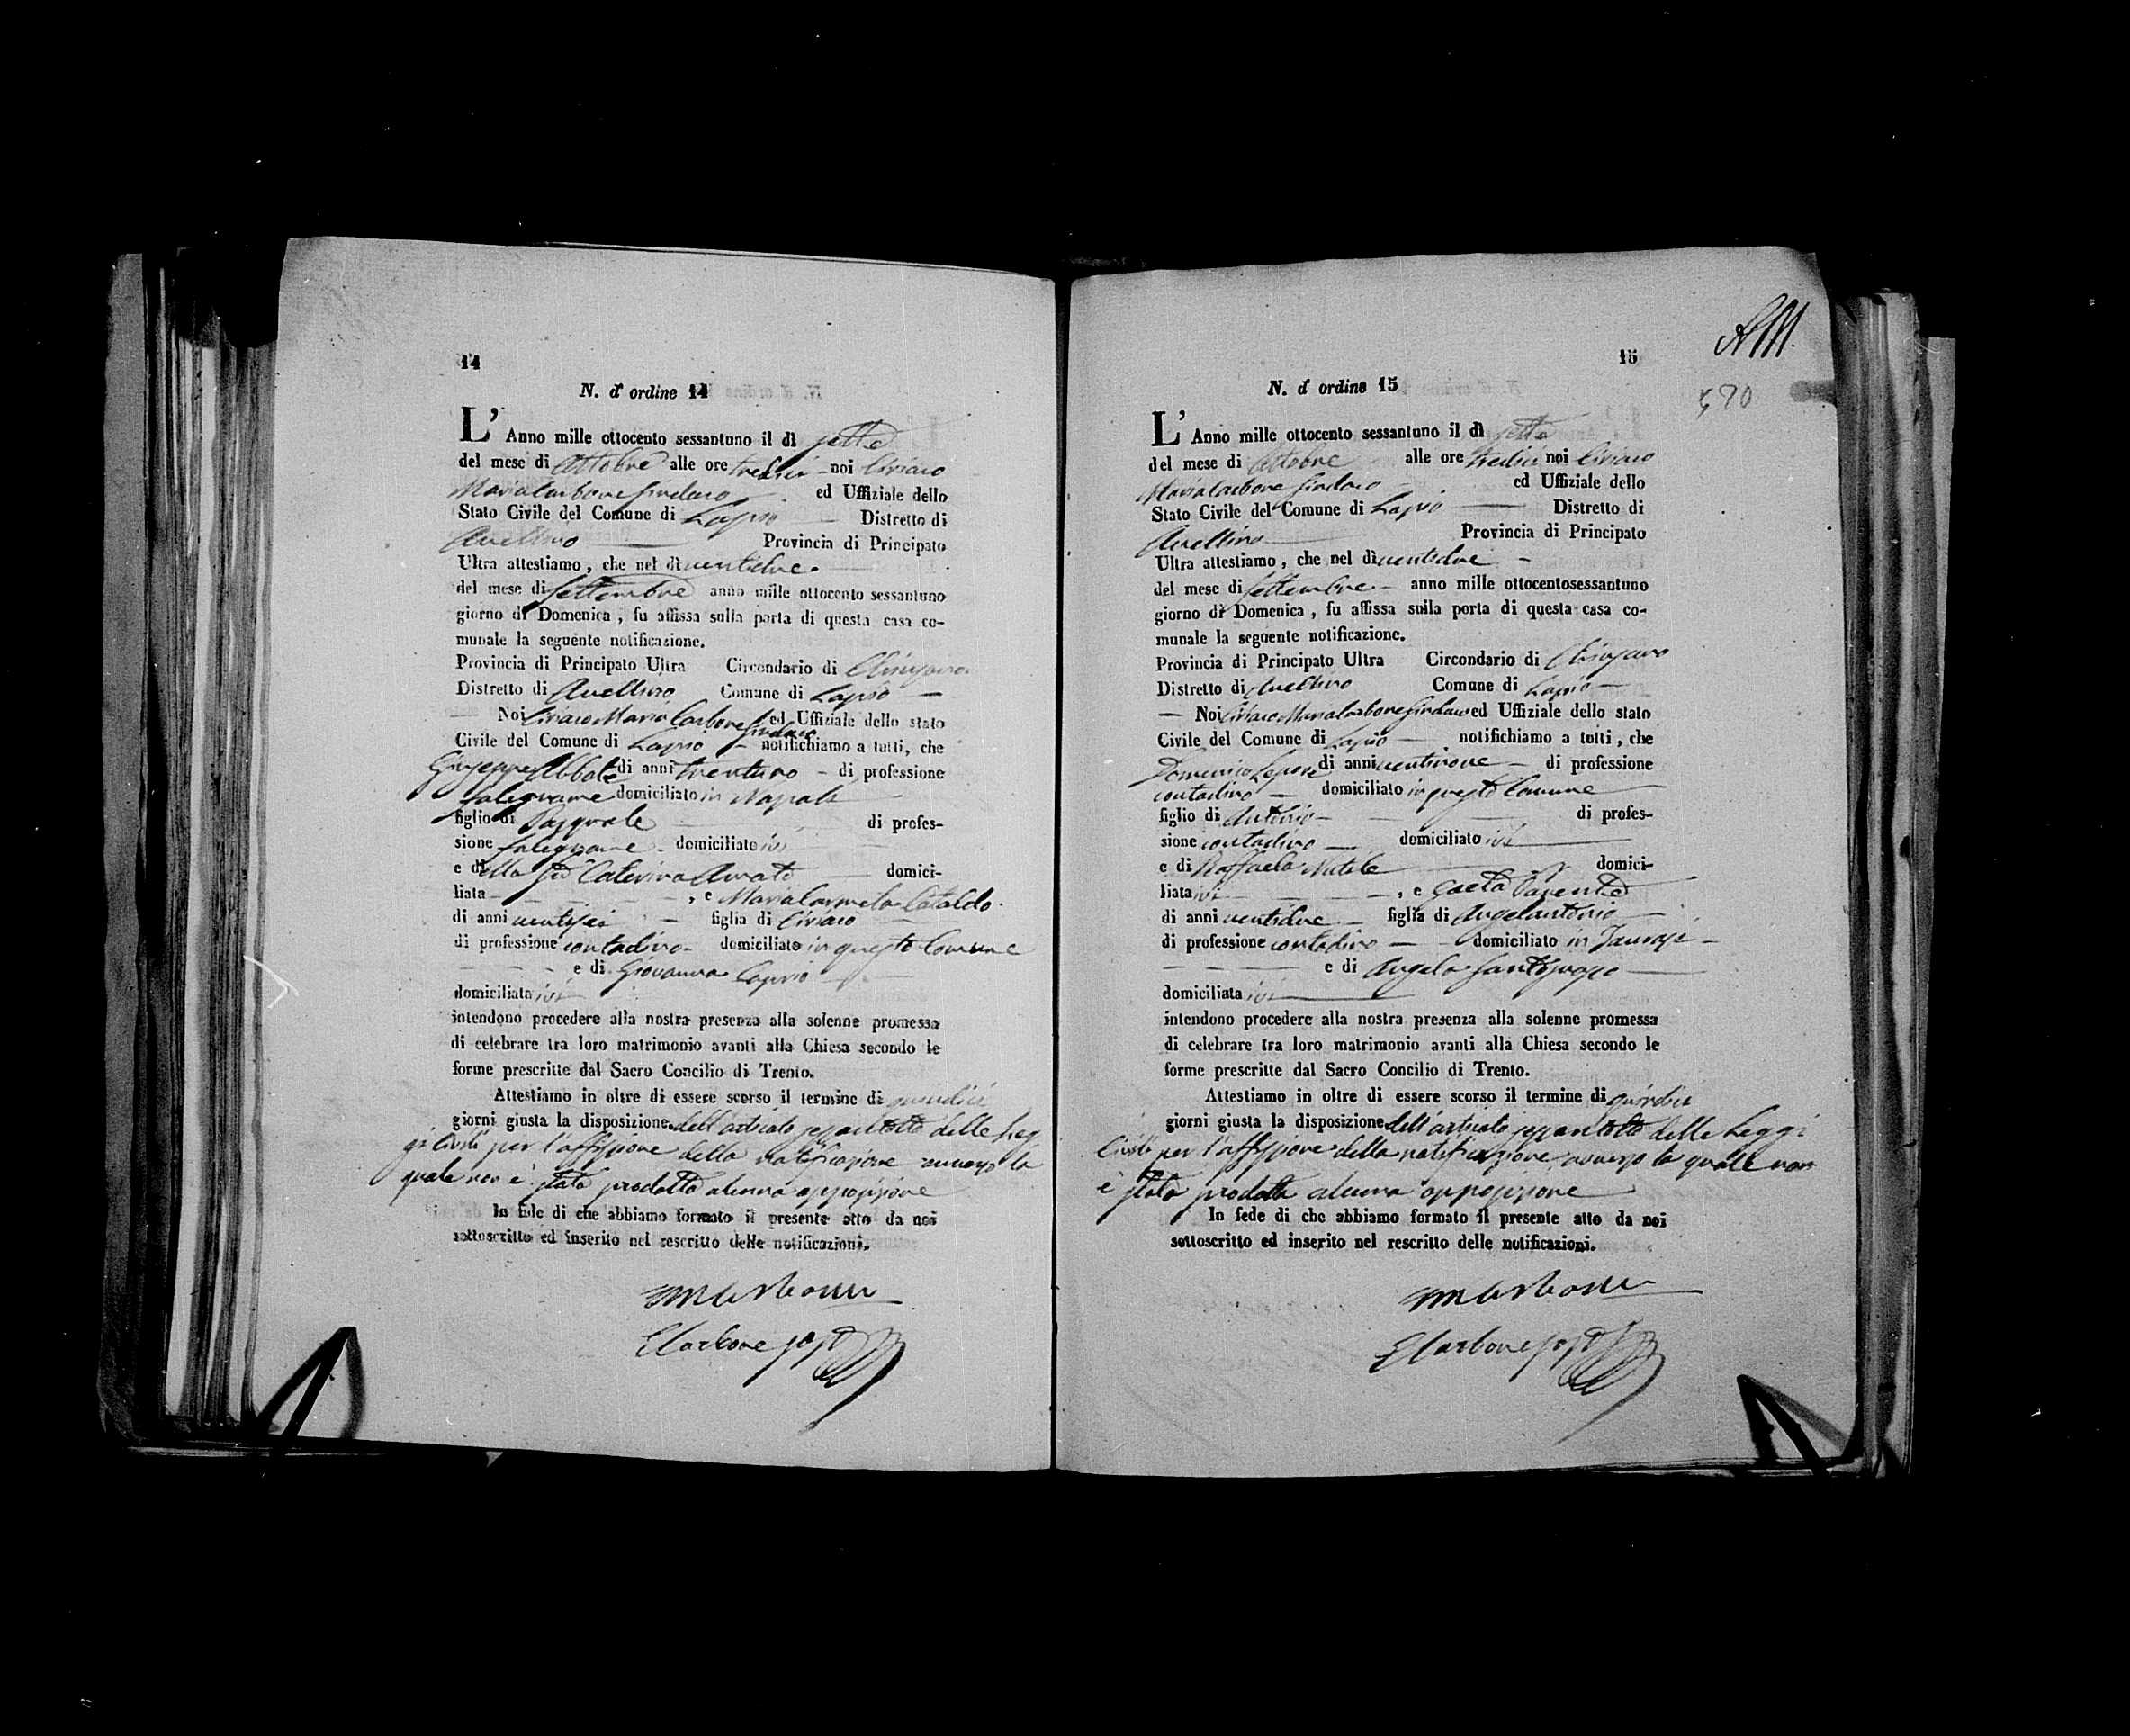 14
N. d' ordine 14
L' Anno mille ottocento sessantuno il dì sette
del mese di Ottobre alle ore tredici noi Ciriaco
Maria Carbone Sindaco ed Uffiziale dello
Stato Civile del Comune di Lapio Distretto di
Avellino Provincia di Principato
Ultra attestiamo, che nel dì ventidue
del mese di Settembre anno mille ottocento sessantuno
giorno di Domenica, fu affissa sulla porta di questa casa co-
munale la seguente notificazione.
Provincia di Principato Ultra Circondario di Chiusano
Distretto di Avellino Comune di Lapio
Noi Ciriaco Maria Carbone Sindaco ed Uffiziale dello stato
Civile del Comune di Lapio notifichiamo a tutti, che
Giuseppe Abbate di anni trentuno di professione
falegname domiciliato in Napoli
figlio di Pasquale di profes-
sione falegname domiciliato ivi
e di della fu Caterina Amato domici-
liata , e Maria Carmela Cataldo
di anni ventisei figlia di Ciriaco
di professione contadino domiciliato in questo Comune
e di Giovanna Caprio
domiciliata ivi
intendono procedere alla nostra presenza alla solenne promessa
di celebrare tra loro matrimonio avanti alla Chiesa secondo le
forme prescritte dal Sacro Concilio di Trento.
Attestiamo in oltre di essere scorso il termine di quindici
giorni giusta la disposizione dell'articolo sessantotto delle Leg
gi Civili per l'affissione della notificazione avverso la
quale non è stata prodotta alcuna opposizione
In fede di che abbiamo formato il presente atto da noi
sottoscritto ed inserito nel rescritto delle notificazioni.
CMCarbone
Carbone
15
N. d' ordine 15
L' Anno mille ottocento sessantuno il dì sette
del mese di Ottobre alle ore tredici noi Ciriaco
Maria Carbone Sindaco ed Uffiziale dello
Stato Civile del Comune di Lapio Distretto di
Avellino Provincia di Principato
Ultra attestiamo, che nel dì ventidue
del mese di Settembre anno mille ottocentosessantuno
giorno di Domenica, fu affissa sulla porta di questa casa co-
munale la seguente notificazione.
Provincia di Principato Ultra Circondario di Chiusano
Distretto di Avellino Comune di Lapio
Noi Ciriaco Maria Carbone Sindaco ed Uffiziale dello stato
Civile del Comune di Lapio notifichiamo a tutti, che
Domenico Lepore di anni ventinove di professione
contadino domiciliato in questo Comune
figlio di Antonio di profes-
sione contadino domiciliato ivi
e di Raffaela Natale domici-
liata ivi , e Gaeta
di anni ventidue figlia di Angelantonio
di professione contadino domiciliato in Taurasi
e di Angela Santosuosso
domiciliata ivi
intendono procedere alla nostra presenza alla solenne promessa
di celebrare tra loro matrimonio avanti alla Chiesa secondo le
forme prescritte dal Sacro Concilio di Trento.
Attestiamo in oltre di essere scorso il termine di quindici
giorni giusta la disposizione dell'articolo sessantotto delle Leggi
Civili per l'affissione della notificazione, avverso la quale non
è stata prodotta alcuna opposizione
In fede di che abbiamo formato il presente atto da noi
sottoscritto ed inserito nel rescritto delle notificazioni.
CMCarbone
Carbone